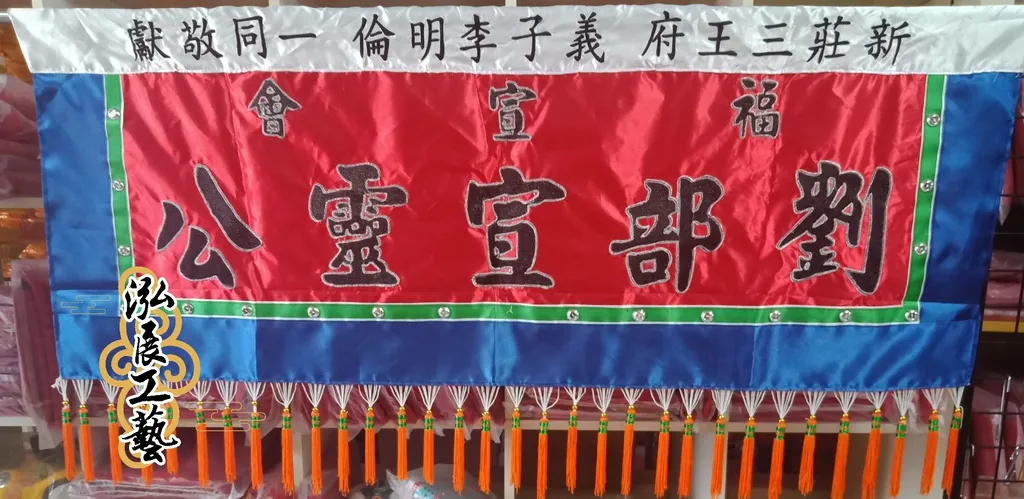 新莊三王府 義子李明倫 一同敬獻
福宣會
劉部宣靈公
泓展工藝